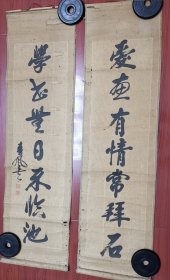 愛畫有情常拜石
學書無日不臨池